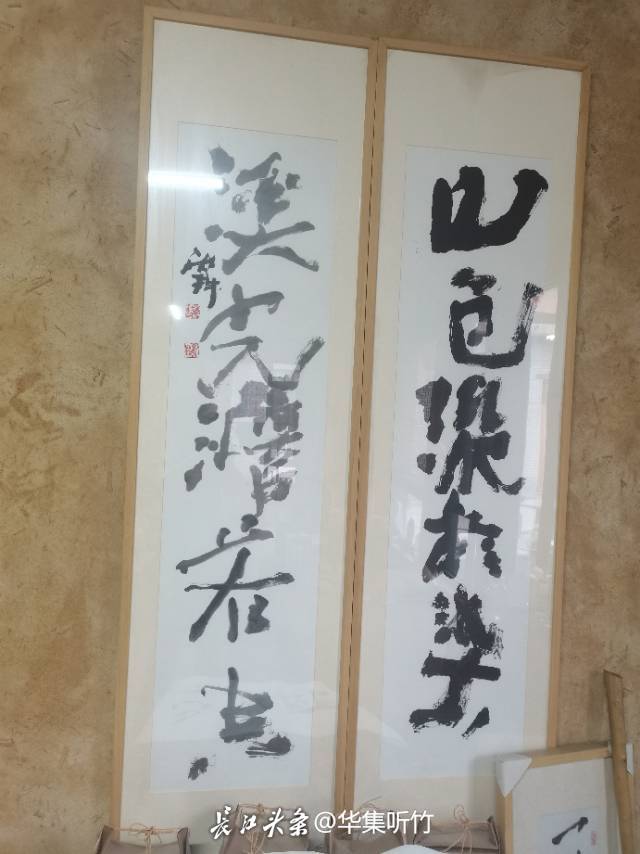 山色深於染
溪光清若
长江头条 @华集听竹